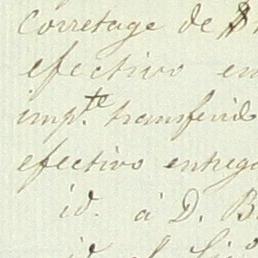 Corretage de
efectivo en
imp.te transferid
efectivo entreg
id. á D. B
id.